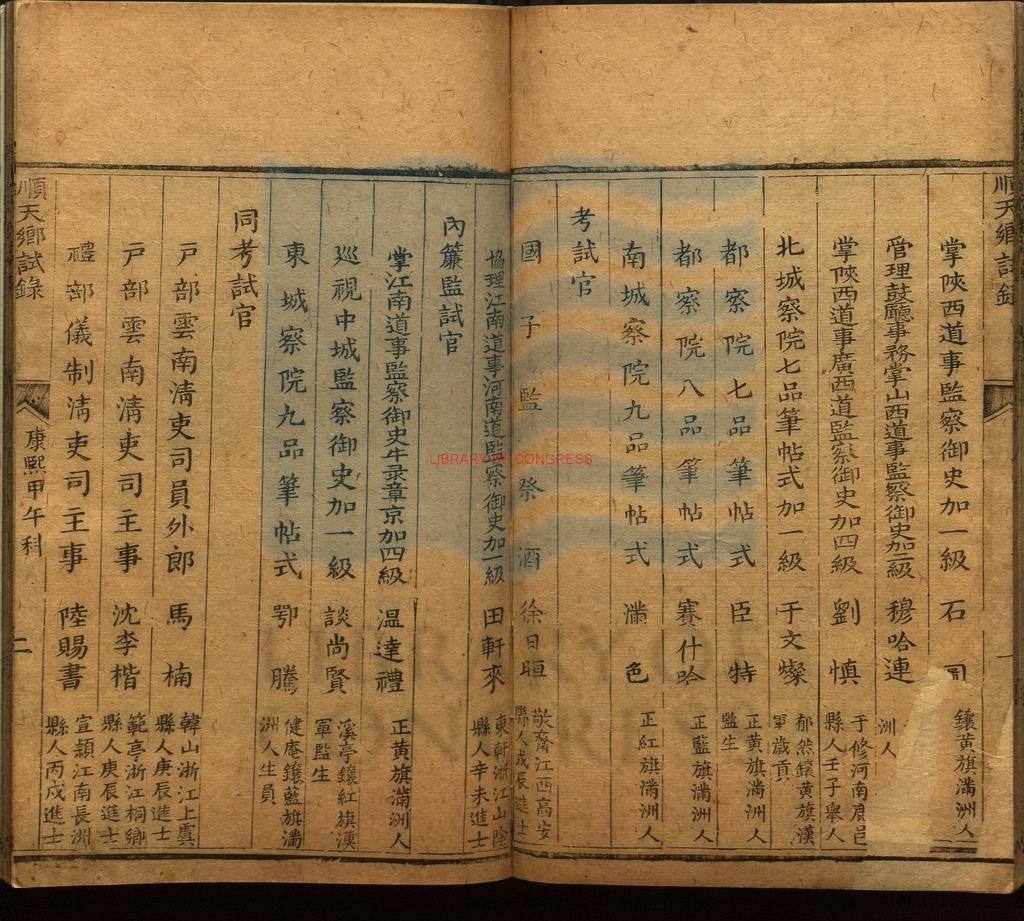 順天鄉試錄
掌陜西道事監察御史加一級 石 鑲黃旗滿洲人
管理鼓廳事務掌山西道事監察御史加二級 穆哈連 洲人
掌陜西道事廣西道監察御史加四級 劉慎 于修河南鹿邑
縣人壬子舉人
北城察院七品筆帖式加一級 于文燦 郁然鑲黃旗漢
軍歲貢
都察院七品筆帖式 臣特 正黃旗滿洲人
監生
都察院八品筆帖式 賽什哈 正藍旗滿洲人
南城察院九品筆帖式 滿色 正紅旗滿洲人
考試官
國子監祭酒 徐日晅 敬齋江西高安
縣人戊辰進士
協理江南道事河南道監察御史加一級 田軒來 東軒浙江山陰
縣人辛未進士
內簾監試官
掌江南道事監察御史牛录章京加四級 温達禮 正黃旗滿洲人
巡視中城監察御史加一級 談尚賢 溪亭鑲紅旗漢
軍監生
東城察院九品筆帖式 鄂騰 健庵鑲藍旗滿
洲人生員
同考試官
戶部雲南清吏司員外郎 馬楠 韓山浙江上虞
縣人庚辰進士
戶部雲南清吏司主事 沈李楷 範亭浙江桐鄉
縣人庚辰進士
禮部儀制清吏司主事 陸賜書 宣穎江南長洲
縣人丙戌進士
順天鄉試錄 康熙甲午科 二
LIBRARY OF CONGRESS